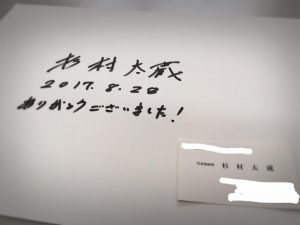 杉村太蔵
2017.8.28
ありがとうございました！
杉村太蔵